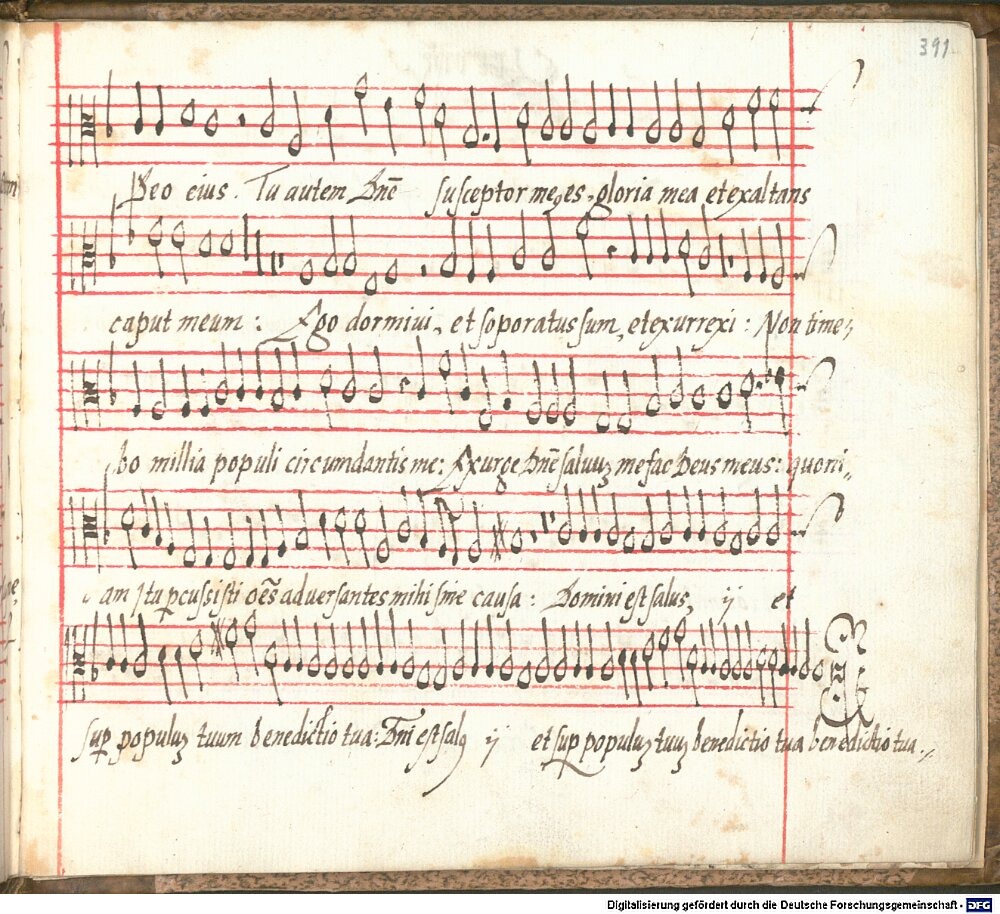 391
Deo eius. Tu autem Dñe susceptor meꝰ es, gloria mea et exaltans
caput meum: Ego dormiui, et soporatus sum, et exurrexi: Non time,,
bo millia populi circumdantis me: Exurge Dñe saluuȝ me fac Deus meus: quoni,,
am Tu ꝑcussisti oẽs adversantes mihi sine causa: Domini est salus, ij et
suꝑ populuȝ tuum benedictio tua: Dñi est salꝰ ij et suꝑ populuȝ tuuȝ benedictio tua benedictio tua.
Digitalisierung gefördert durch die Deutsche Forschungsgemeinschaft - DFG